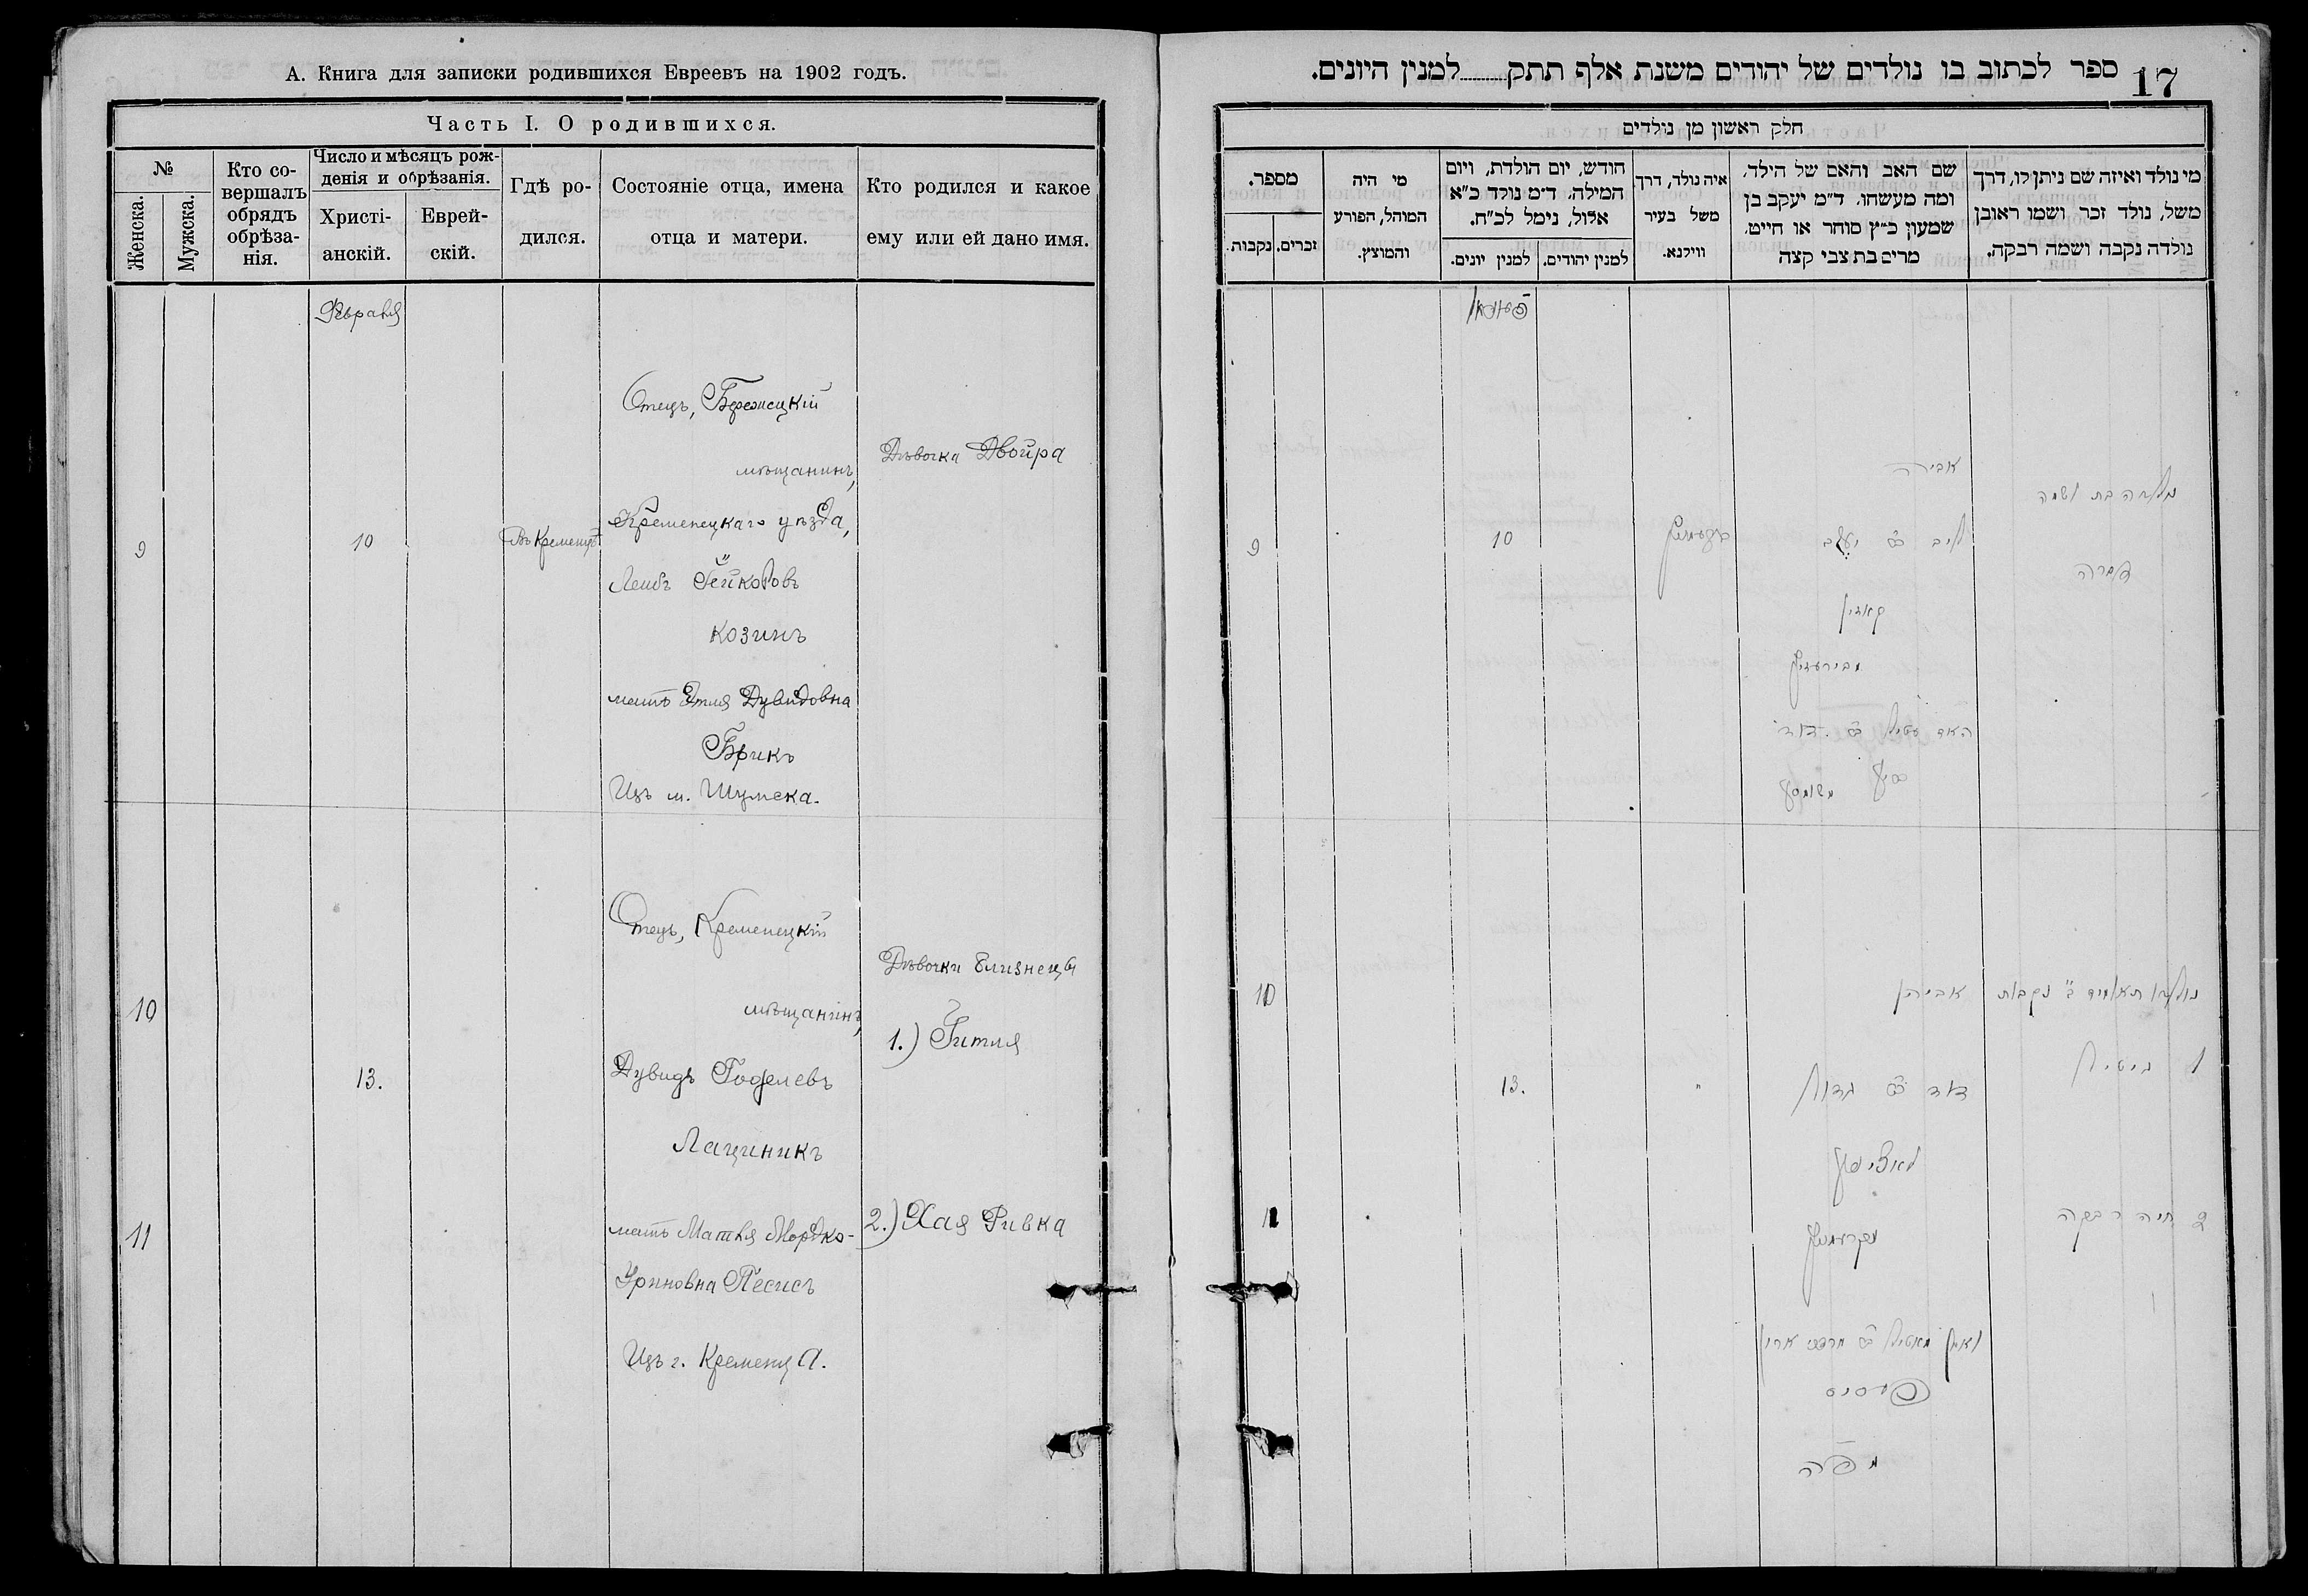 А. Книга для записки родившихся Евреевъ на 1902 годъ.
Часть I. О родившихся.
№
Женска.
Мужска.
Кто со-
вершалъ
обрядъ
обрѣза-
нія.
Число и мѣсяцъ рож-
денія и обрѣзанія.
Христі-
анскій.
Еврей-
скій.
Гдѣ ро-
дился.
Состояніе отца, имена
отца и матери.
Кто родился и какое
ему или ей дано имя.
Февраля
9
10
Въ Кременцѣ
Отецъ, Бережецкій
мѣщанинъ,
Кременецкаго уѣзда,
Лейбъ
Козинъ
мать Этля Дувидовна
Брикъ
Изъ м. Шумска.
Дѣвочка Двойра
10
11
13.
Отецъ, Кременецкій
мѣщанинъ,
Дувидъ Годелевъ
Лациникъ
мать Матля Мордко-
Уриновна Песисъ
Изъ г. Кременца.
Дѣвочки близнецы
1.) Гитля
2.) Хая Ривка
17
ספר לכתוב בו נולדים של יהודים משנת אלף תתק למנין היונים.
חלק ראשון מן נולדים
מי נולד ואיזה שם ניתן לו, דרך
משל, נולד זכר ושמו ראובן
נולדה נקבה ושמה רבקה.
שם האב והאם של הילד,
ומה מעשהו. ד״מ יעקב בן
שמעון כ״ץ סוחר או חייט.
מרים בת צבי קצה
איה נולד, דרך
משל בעיר
ווילנא.
חודש, יום הולדת, ויום
המילה, ד״מ נולד כ״א
אלול, נימל לכ״ח.
למנין יהודים.
למנין יונים.
מי היה
המוהל, הפורע
והמוצץ.
מספר.
זכרים.
נקבות.
9
10
אביה
נולדה בת ושמה
ליב
דבורה
קאזין
האם עטיל
בריק
10
13.
"
נולדו תאומים ב' נקבות
אביהן
1 גיטיל
דוד
2 חיה רבקה
ואמן מאטיל
פעסיס
מפ״ה